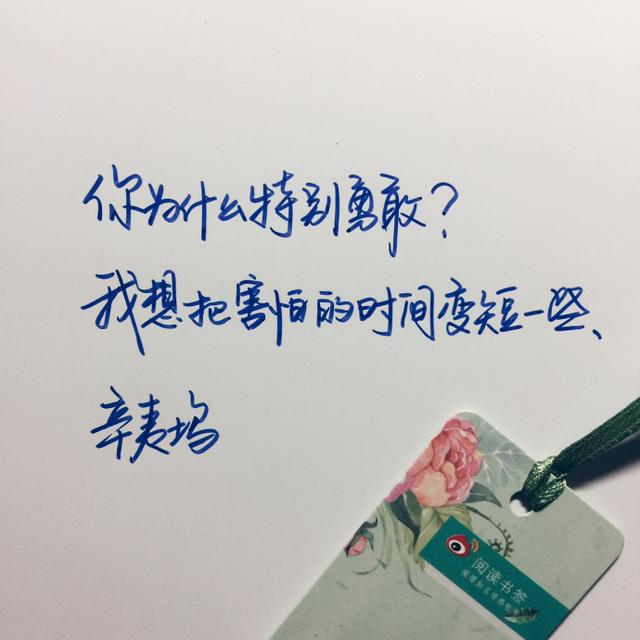 你为什么特别勇敢？
我想把害怕的时间变短一些、
辛夷坞
阅读书签